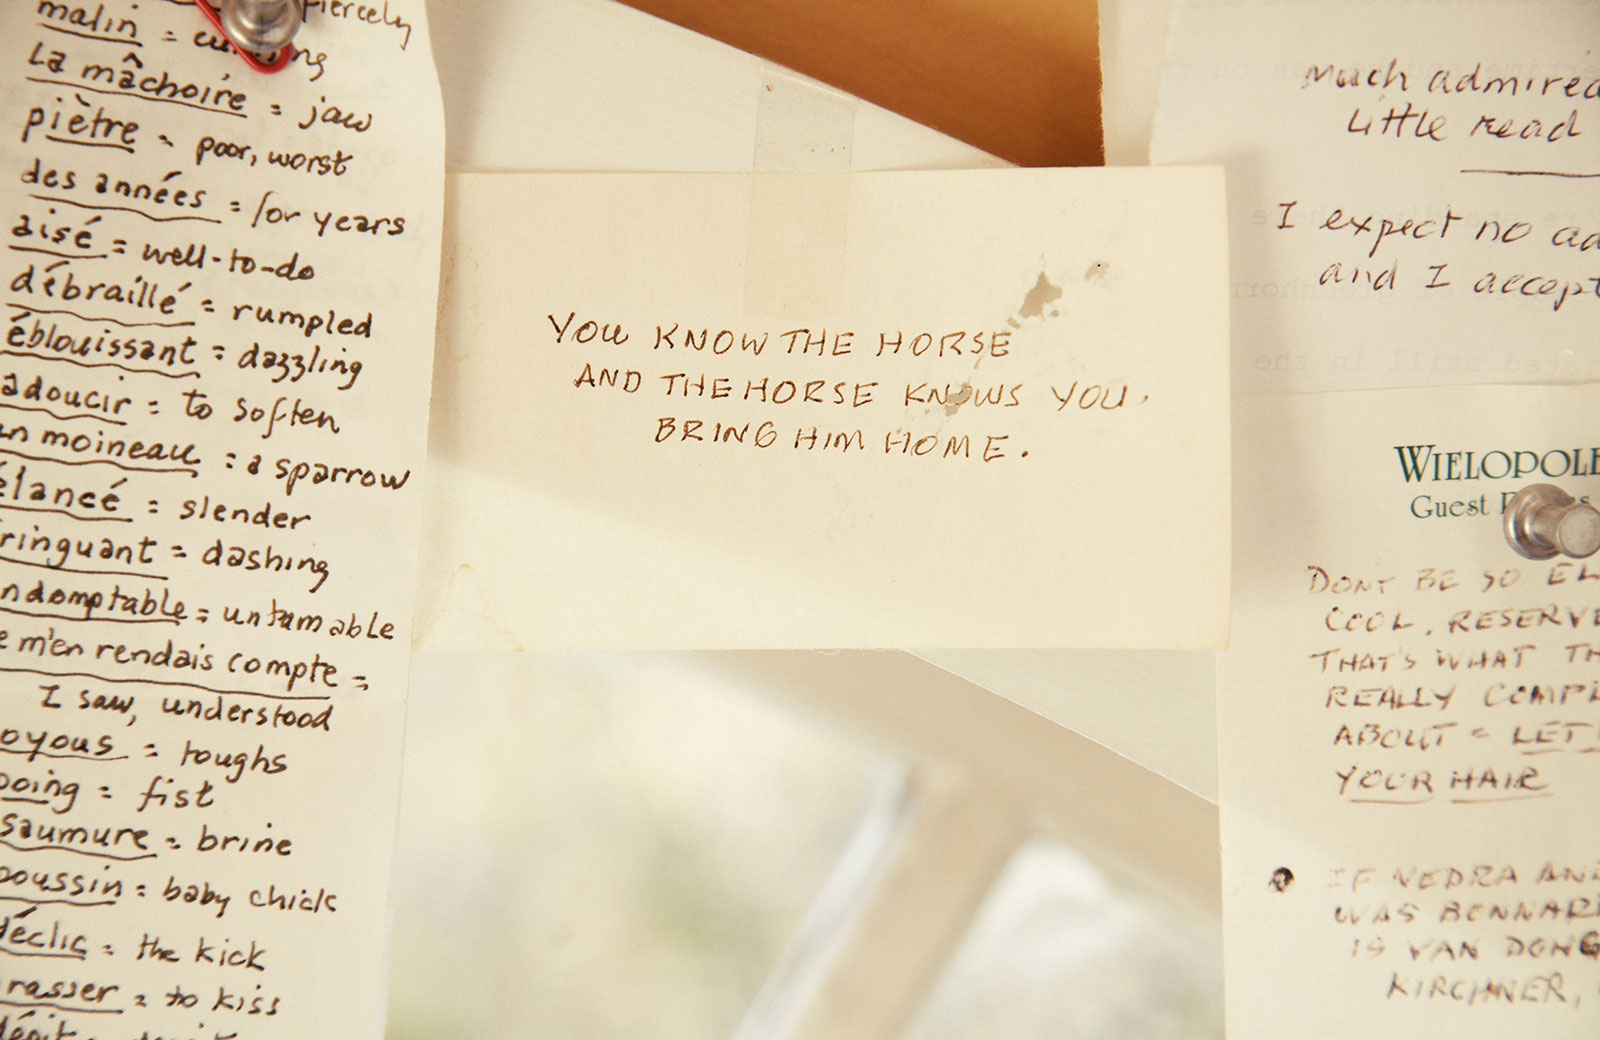 fiercely
malin = cunning
La mâchoire = jaw
piètre = poor, worst
des années = for years
aisé = well-to-do
débraillé = rumpled
éblouissant = dazzling
adoucir = to soften
un moineau = a sparrow
élancé = slender
ringuant = dashing
ndomptable = untamable
e m'en rendais compte =
I saw, understood
oyous = toughs
poing = fist
saumure = brine
poussin = baby chick
déclic = the kick
rasser = to kiss
YOU KNOW THE HORSE
AND THE HORSE KNOWS YOU.
BRING HIM HOME.
Much admired
little read
I expect no ad
and I accept
WIELOPOLE
Guest
DONT BE SO EL
COOL, RESERVE
THAT'S WHAT TH
REALLY COMPL
ABOUT = LET
YOUR HAIR
IF NEDRA AND
WAS BONNARD
IS VAN DONG
KIRCHNER,